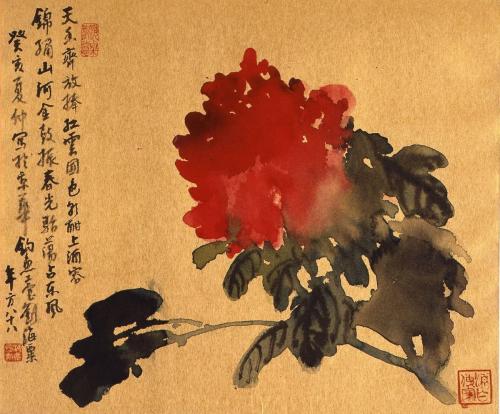 天香齊放捧紅雲國色酣上酒容
錦繡山河金鼓振春光駘蕩占東風
癸亥夏仲寫於京華釣魚臺劉海粟
年方八八